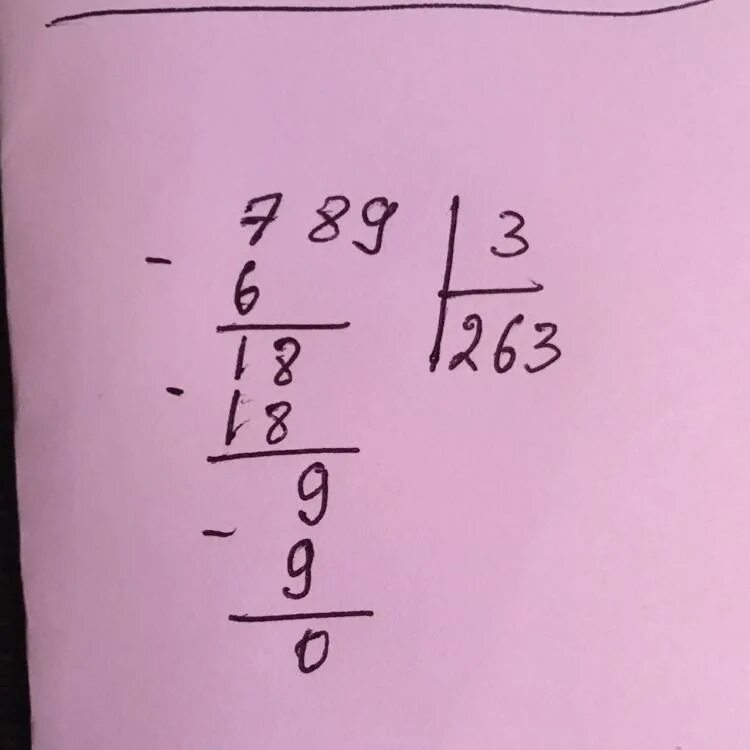 789 | 3
- 6 | 263
18
- 18
9
- 9
0